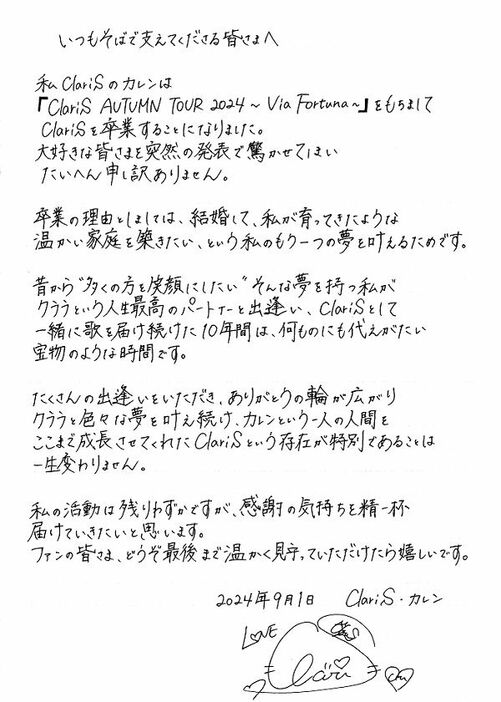 いつもそばで支えてくださる皆さまへ
私ClariSのカレンは
「ClariS AUTUMN TOUR 2024～Via Fortuna～」をもちまして
ClariSを卒業することになりました。
大好きな皆さまを突然の発表で驚かせてしまい
たいへん申し訳ありません。
卒業の理由としましては、結婚して、私が育ってきたような
温かい家庭を築きたい、という私のもう一つの夢を叶えるためです。
昔から"多くの方を笑顔にしたい"そんな夢を持つ私が
クララという人生最高のパートナーと出逢い、ClariSとして
一緒に歌を届け続けた10年間は、何ものにも代えがたい
宝物のような時間です。
たくさんの出逢いをいただき、ありがとうの輪が広がり
クララと色々な夢を叶え続け、カレンという一人の人間を
ここまで成長させてくれたClariSという存在が特別であることは
一生変わりません。
私の活動は残りわずかですが、感謝の気持ちを精一杯
届けていきたいと思います。
ファンの皆さま、どうぞ最後まで温かく見守っていただけたら嬉しいです。
2024年9月1日 ClariS・カレン
LOVE